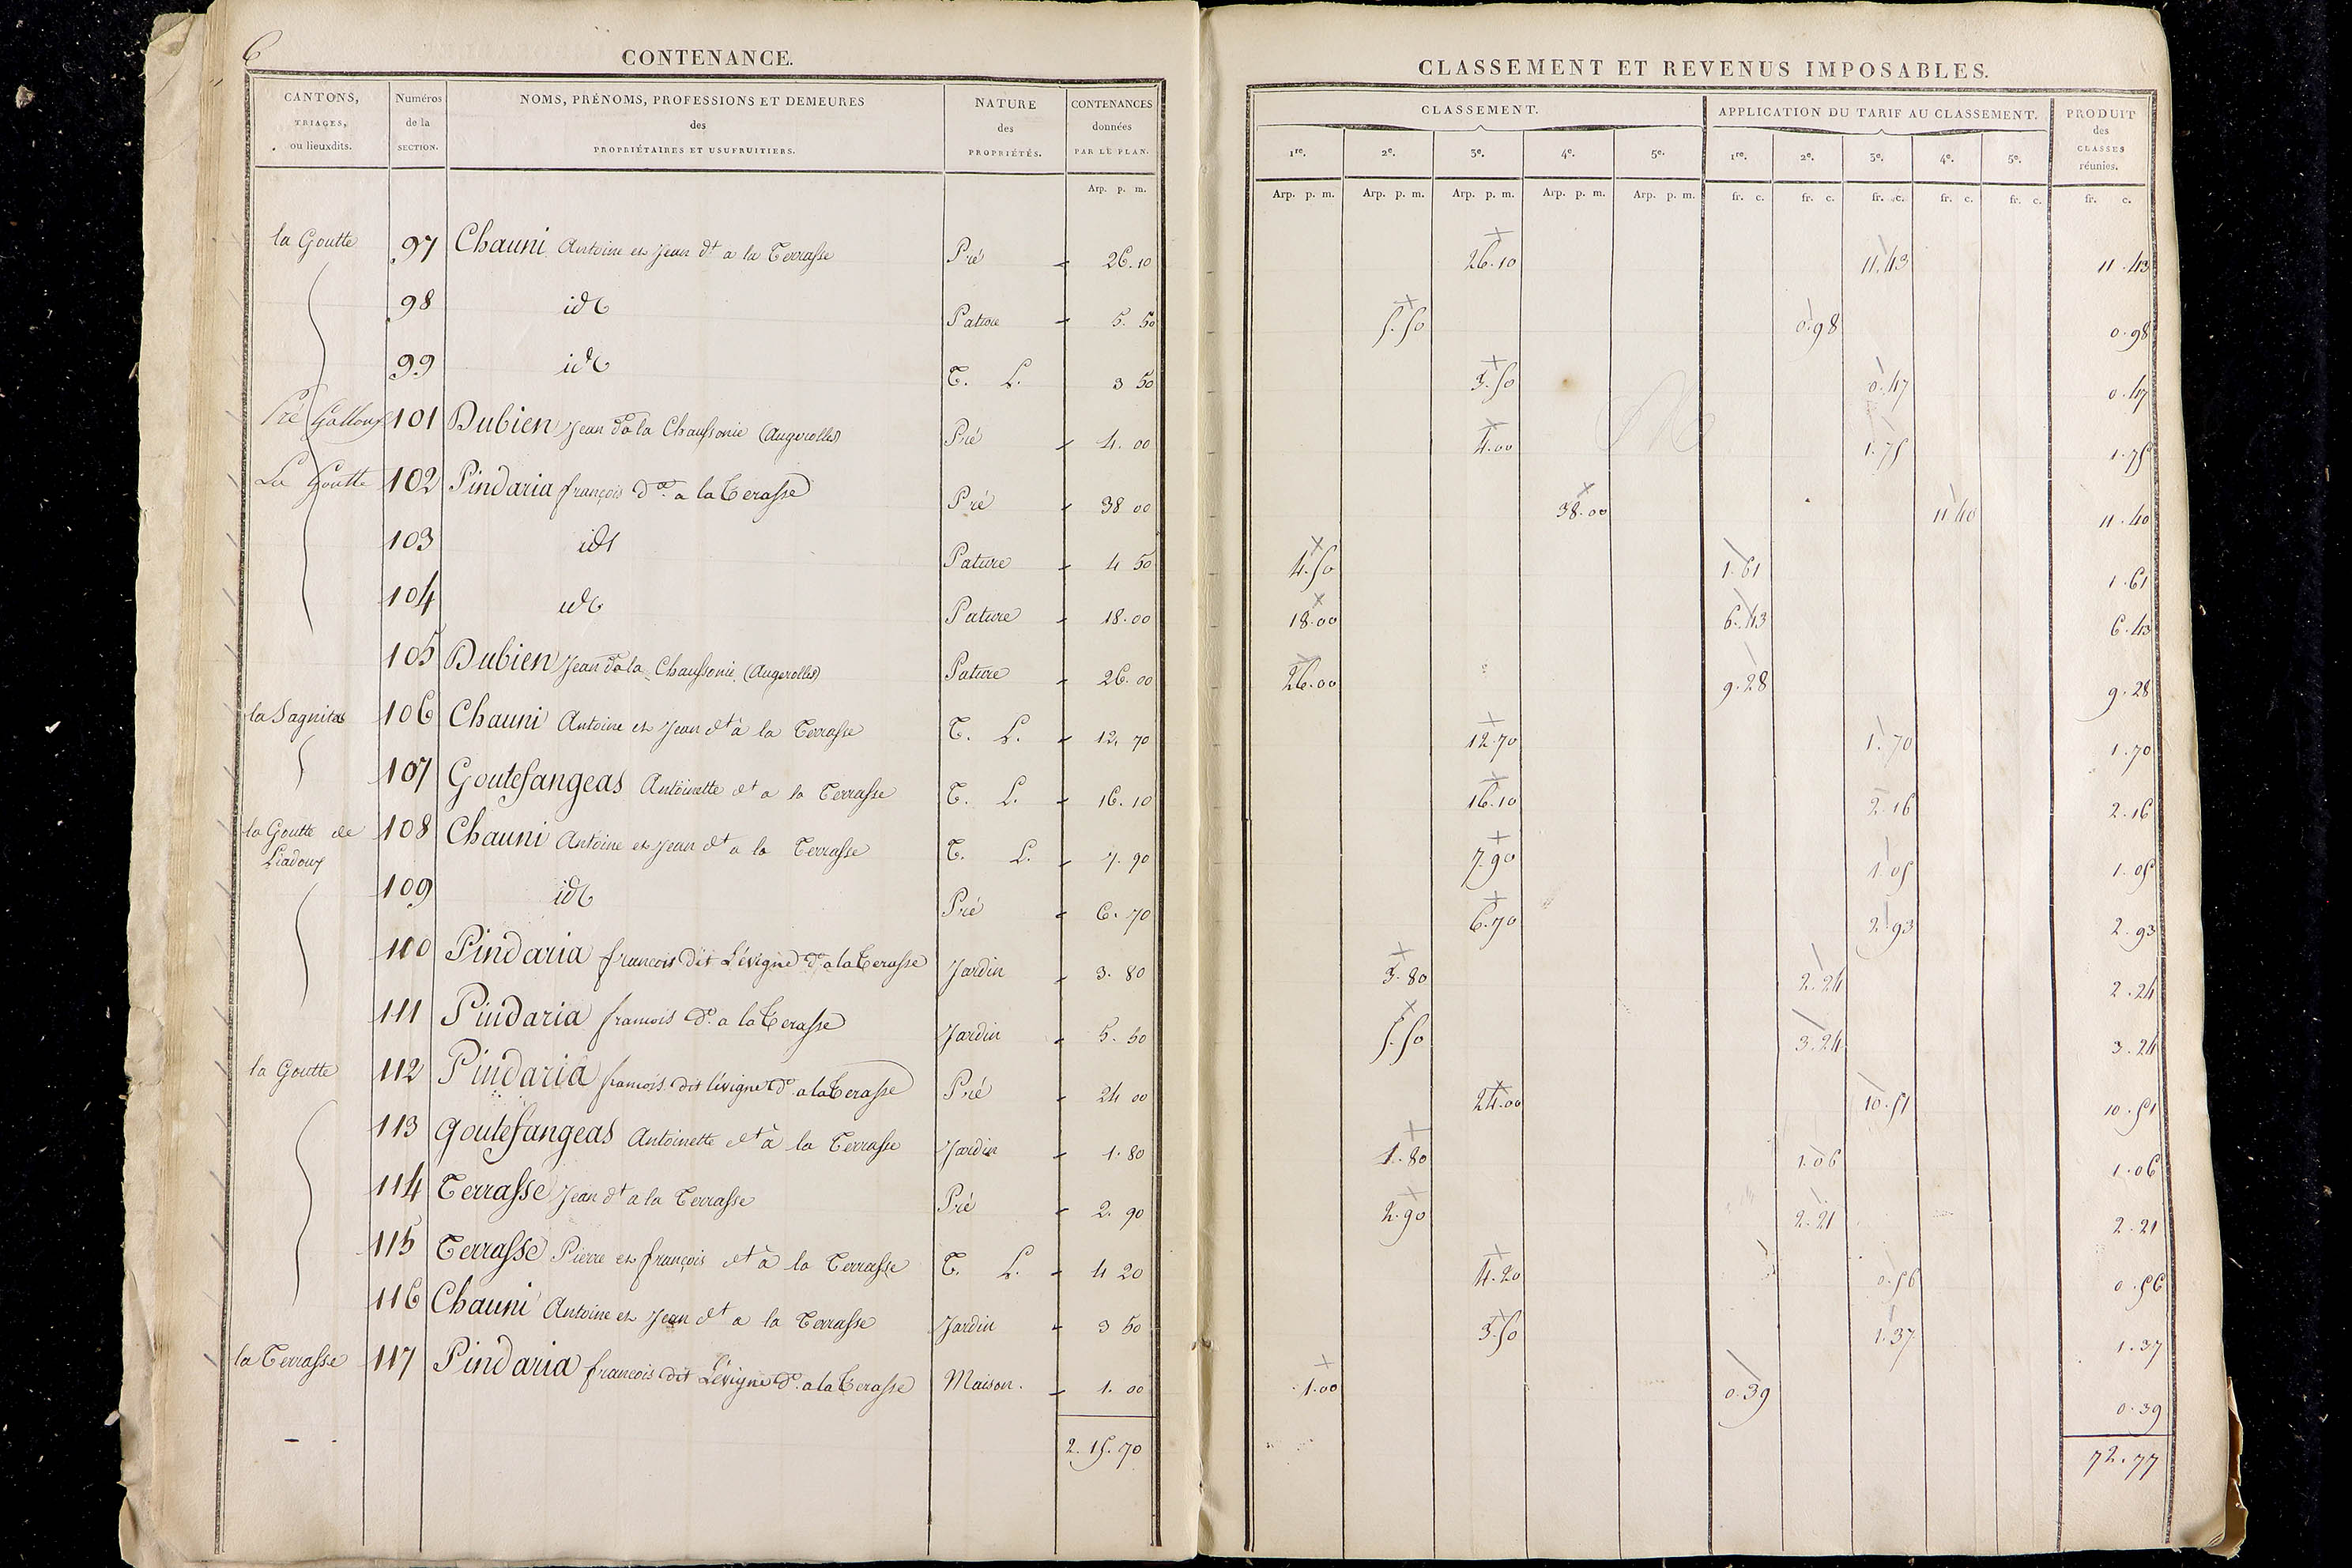 6
CONTENANCE.
CANTONS, TRIAGES, ou lieuxdits.
Numéros de la SECTION.
NOMS, PRÉNOMS, PROFESSIONS ET DEMEURES des PROPRIÉTAIRES ET USUFRUITIERS.
NATURE des PROPRIÉTÉS.
CONTENANCES données PAR LE PLAN.
Arp. p. m.
la Goutte 97 Chauni Antoine et Jean dt a la Terrasse Pré 26.10
98 id Pature 5. 50
99 id T. L. 3 50
Pré 101 Dubien Jean do a la Chaussonie (Augerolles) Pré 4. 00
La Goutte 102 Pindaria françois do. a la Terasse Pré 38 00
103 id Pature 4 50
104 id Pature 18.00
105 Dubien Jean do a la Chaussonie (Augerolles) Pature 26.00
la Sagnitas 106 Chauni Antoine et Jean dt à la Terrasse T. L. 12. 70
107 Goutefangeas Antoinette dt a la Terrasse T. L. 16. 10
la Goutte de Liadoux 108 Chauni Antoine et Jean dt a la Terrasse T. L. 7. 90
109 id Pré 6. 70
110 Pindaria francois dit Lévigne do. a la Terasse Jardin 3. 80
111 Pindaria francois do. a la Terasse Jardin 5. 50
la Goutte 112 Pindaria francois dit lévigne do. a la Terasse Pré 24 00
113 Goutefangeas Antoinette dt à la Terrasse Jardin 1. 80
114 Terrasse Jean dt a la Terrasse Pré 2. 90
115 Terrasse Pierre et françois dt à la Terrasse T. L. 4 20
116 Chauni Antoine et Jean dt a la Terrasse Jardin 3 50
la Terrasse 117 Pindaria francois dit Lévigne do. a la Terasse Maison. 1. 00
2. 15. 70
CLASSEMENT ET REVENUS IMPOSABLES.
CLASSEMENT.
APPLICATION DU TARIF AU CLASSEMENT.
PRODUIT des CLASSES réunies.
1re. 2e. 3e. 4e. 5e. 1re. 2e. 3e. 4e. 5e.
Arp. p. m. Arp. p. m. Arp. p. m. Arp. p. m. Arp. p. m. fr. c. fr. c. fr. c. fr. c. fr. c. fr. c.
26.10 11.43 11.43
5.50 0.98 0.98
3.50 0.47 0.47
4.00 1.75 1.75
38.00 11.40 11.40
4.50 1.61 1.61
18.00 6.43 6.43
26.00 9.28 9.28
12.70 1.70 1.70
16.10 2.16 2.16
7.90 1.05 1.05
6.70 2.93 2.93
3.80 2.24 2.24
5.50 3.24 3.24
24.00 10.51 10.51
1.80 1.06 1.06
2.90 2.21 2.21
4.20 0.56 0.56
3.50 1.37 1.37
1.00 0.39 0.39
72.77